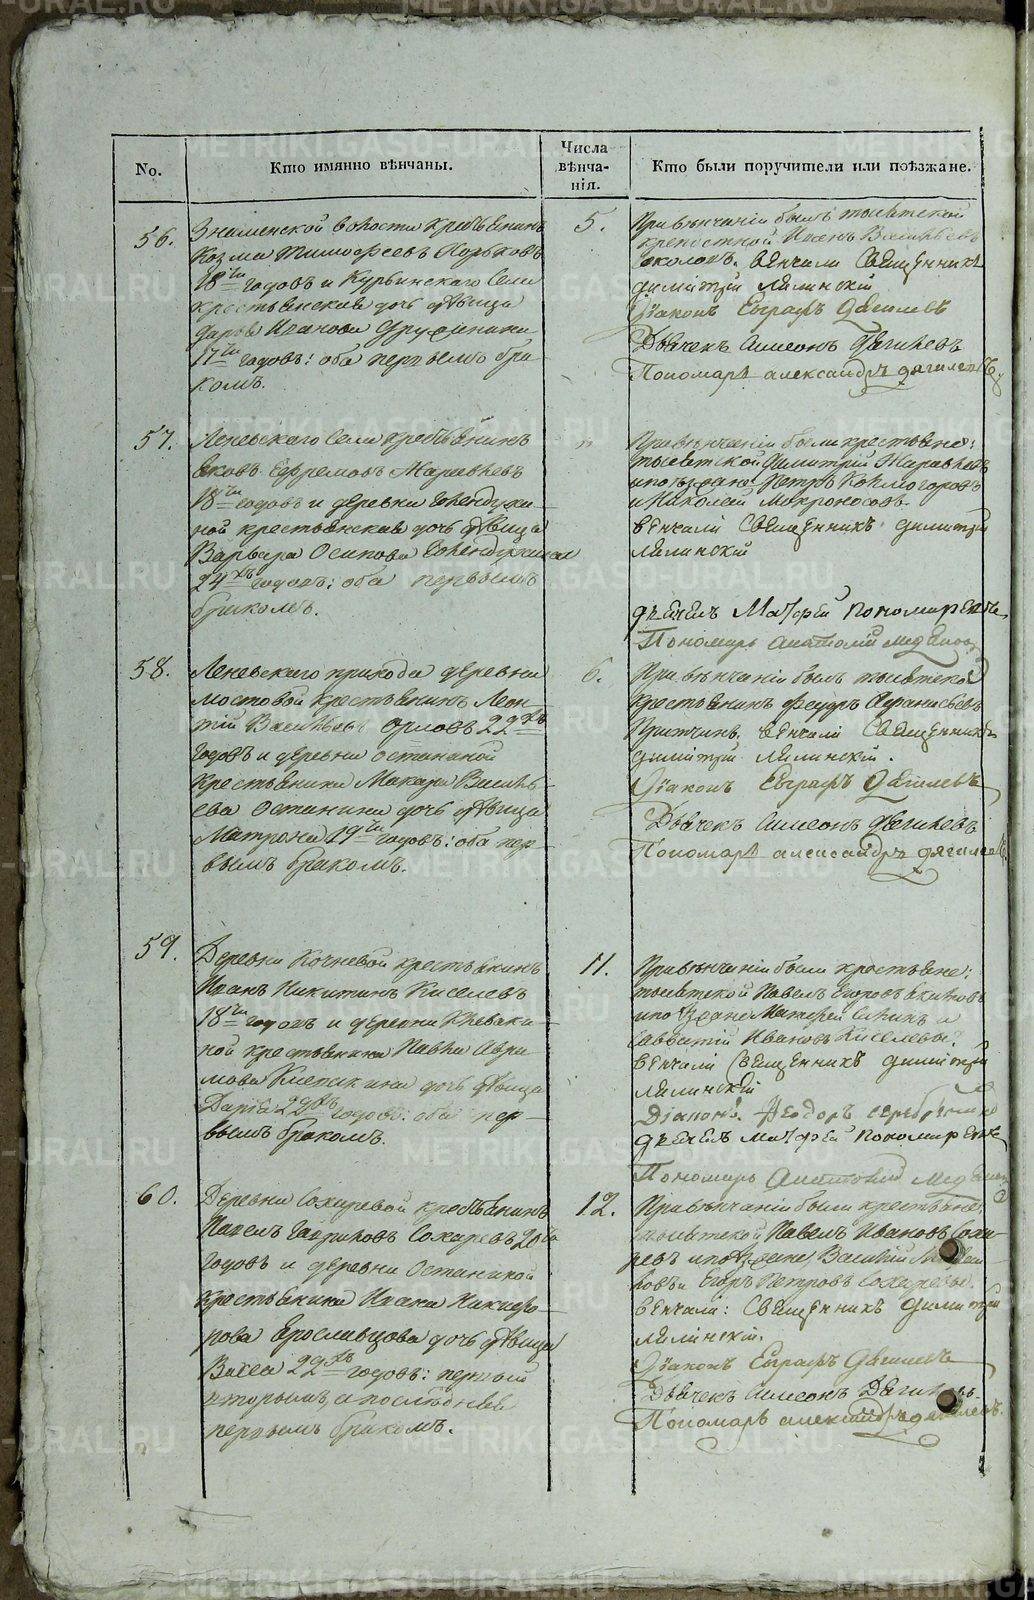 METRIKI.GASO-URAL.RU
No.
Кто имянно вѣнчаны.
Числа
вѣнча-
нія.
Кто были поручители или поѣзжане.
56.
Знаменской волости крестьянинъ
Козма Тимофеевъ
18ти годовъ и Курьинскаго Села
крестьянская дочь дѣвица
Дарья Иванова
17ти годовъ: оба первымъ бра-
комъ.
5.
При вѣнчаніи былъ тысятской
Иванъ Васильевъ
Соколовъ. вѣнчали Священникъ
димитрій лялинскій
Діаконъ Евграфъ Дягилевъ
Дьячекъ Симеонъ Дягилевъ
Пономарь александръ дягилевъ
57.
Леневскаго Села крестьянинъ
Яковъ Ефремовъ Жаравлевъ
18ти годовъ и деревни
ной крестьянская дочь дѣвица
Варвара Осипова
24хъ годовъ: оба первымъ
бракомъ.
"
При вѣнчаніи были крестьяне:
тысятской Димитрій Жаравлевъ
и поѣзжане Петръ Колмогоровъ
и Николай Мокроносовъ.
вѣнчали Священникъ димитрій
лялинскій
дьячекъ Матфей
Пономарь Анатолій
58.
Леневскаго прихода деревни
мостовой крестьянинъ Леон-
тій Васильевъ Орловъ 22хъ
годовъ и деревни останиной
крестьянина Макара Василь-
ева Останина дочь дѣвица
Матрона 19ти годовъ: оба пер-
вымъ бракомъ.
6.
При вѣнчаніи былъ тысятской
крестьянинъ Федоръ Афанасьевъ
вѣнчали Священникъ
димитрій лялинскій.
Діаконъ Евграфъ Дягилевъ
Дьячекъ Симеонъ Дягилевъ
Пономарь александръ дягилевъ
59.
Деревни Кочневой крестьянинъ
Иванъ Никитинъ Киселевъ
18ти годовъ и деревни Клеваки-
ной крестьянина Павла Авра-
мова Клевакина дочь дѣвица
Дарья 22хъ годовъ: оба пер-
вымъ бракомъ.
11.
При вѣнчаніи были крестьяне:
тысятской Павелъ Егоровъ
и поѣзжане Матфей и
Савватій Ивановъ Киселевы.
вѣнчали Священникъ димитрій
лялинскій
Діаконъ Феодоръ
дьячекъ Матфей
Пономарь Анатолій
60.
Деревни Сохаревой крестьянинъ
Павелъ Гавриловъ Сохаревъ 20ти
годовъ и деревни Останиной
крестьянина Ивана Никифо-
рова Ерославцова дочь дѣвица
Васса 22хъ годовъ: первый
вторымъ, а последняя
первымъ бракомъ.
12.
При вѣнчаніи были крестьяне:
тысятской Павелъ Ивановъ Соха-
ревъ и поѣзжане Василій
Егоръ Петровъ Сохаревы.
вѣнчали: Священникъ димитрій
лялинскій.
Діаконъ Евграфъ Дягилевъ
Дьячекъ Симеонъ Дягилевъ
Пономарь александръ дягилевъ.